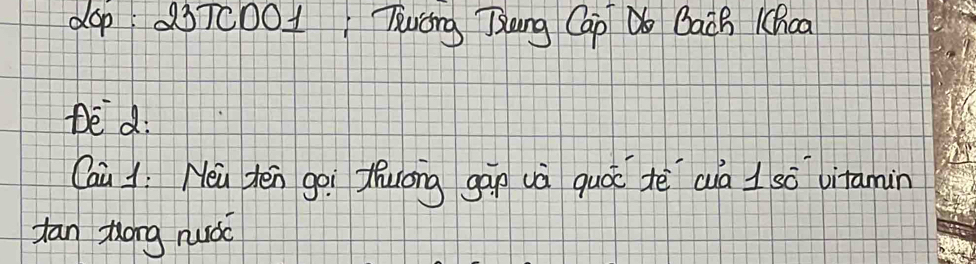 Lớp: 23TCD01; Trường Trung Cấp Bách Khoa
Đề 2:
Câu 1: Nêu tên gọi thường gặp và quốc tế của 1 số vitamin
tan trong nước